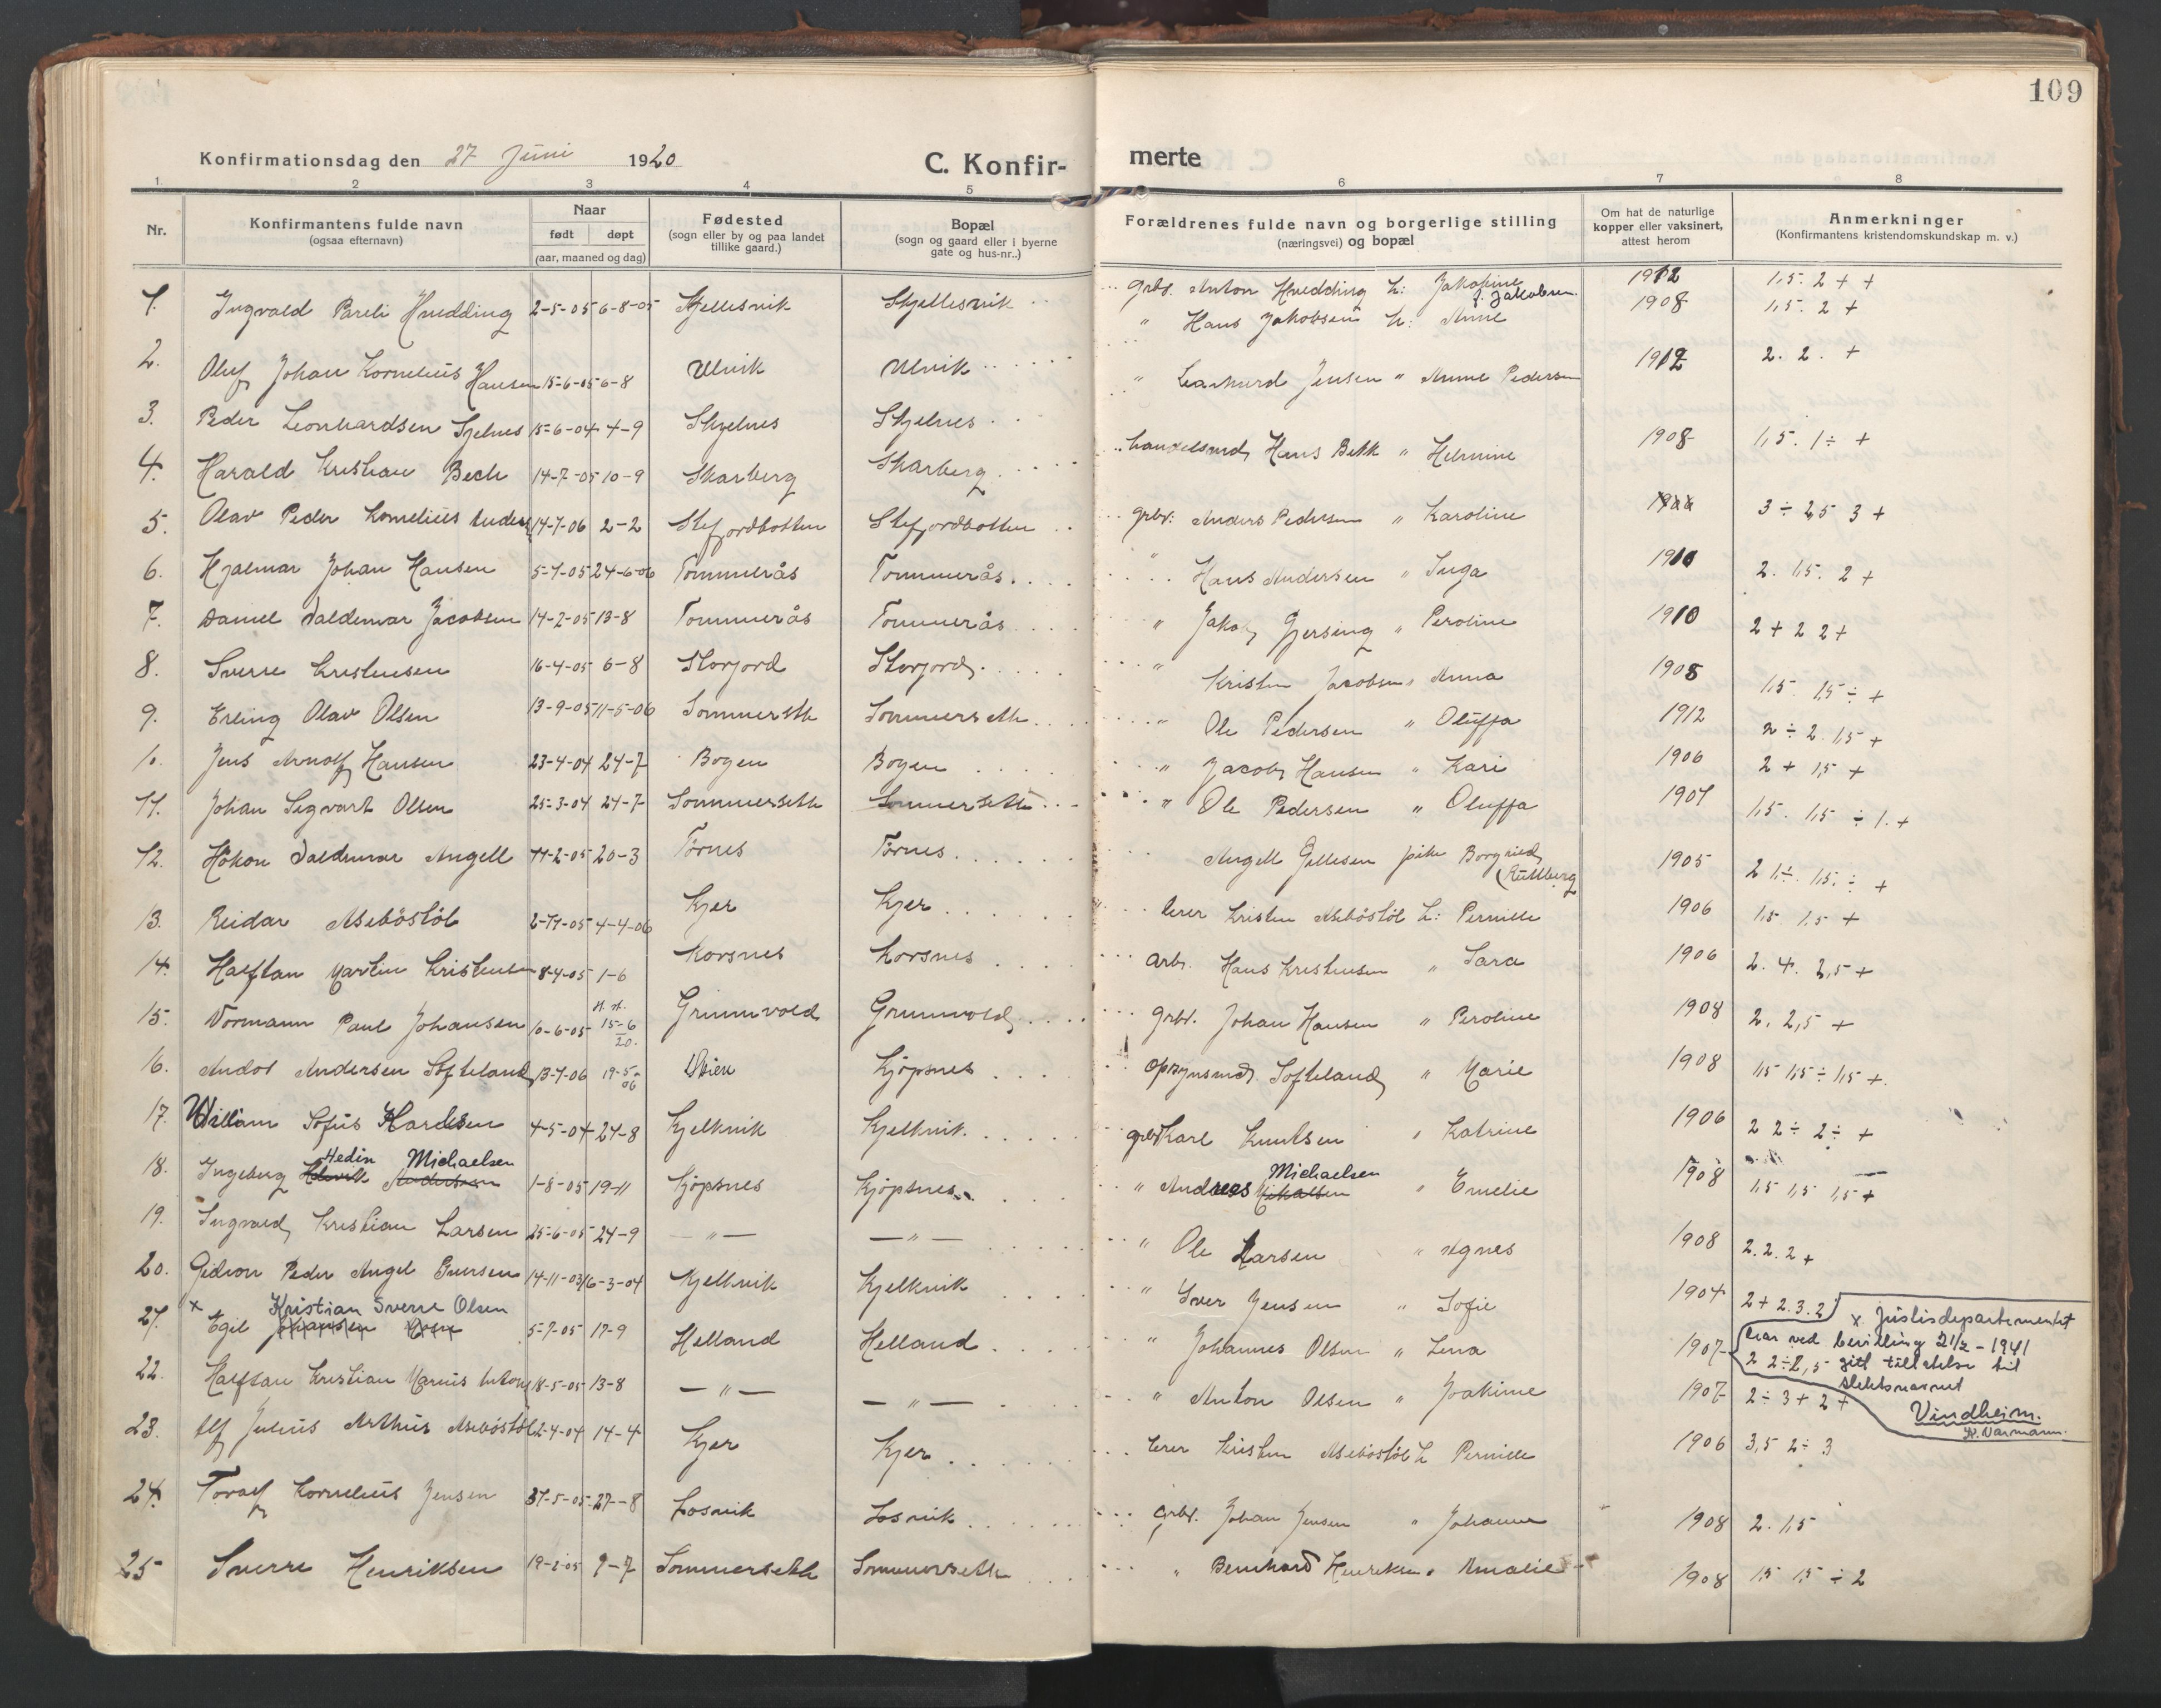 109
Konfirmationsdag den 27 Juni 1920 C. Konfir- merte
1 2 3 4 5 6 7 8
Nr. Konfirmantens fulde navn (ogsaa efternavn) Naar født døpt (aar, maaned og dag) Fødested (sogn eller by og paa landet tillike gaard.) Bopæl (sogn og gaard eller i byerne gate og hus-nr..) Forældrenes fulde navn og borgerlige stilling (næringsvei) og bopæl Om hat de naturlige kopper eller vaksinert, attest herom Anmerkninger (Konfirmantens kristendomskundskap m. v.)
1. Ingvald Pareli Hvedding 2-5-05 6-8-05 Skjellesvik Skjellesvik grbr. Anton Hvedding h: Jakobine f. Jakobsen. 1912 1,5. 2 + +
2. Oluf Johan Kornelius Hansen 15-6-05 6-8 Ulvik Ulvik " Hans Jakobsen h: Anne 1908 1,5. 2 +
3. Peder Leonhardsen Sjelnes 15-6-04 4-9 Skjelnes Skjelnes " Leonhard Jensen " Anne Pedersen 1912 2. 2. +
4. Harald Kristian Bech 14-7-05 10-9 Skarberg Skarberg handelsmd. Hans Bekk " Helmine 1908 1,5. 1 ÷ +
5. Olav Peder Kornelius Anders 14-7-06 2-2 Stefjordbotten Stefjordbotten grbr. Anders Pedersen " Karoline 3 ÷ 2,5 3 +
6. Hjalmar Johan Hansen 5-7-05 24-6-06 Tømmerås Tømmerås " Hans Andersen " Inga 1910 2. 1,5. 2 +
7. Daniel Valdemar Jacobsen 14-2-05 13-8 Tømmerås Tømmerås " Jakob Gjersing " Peroline 1910 2 + 2 2 +
8. Sverre Kristensen 16-4-05 6-8 Storjord Storjord " Kristen Jacobsen " Anna 1905 1,5. 1,5 ÷ +
9. Erling Olav Olsen 13-9-05 11-5-06 Sommerseth Sommerseth " Ole Pedersen " Oluffa 1912 2 ÷ 2. 1,5 +
10. Jens Arnolf Hansen 23-4-04 24-7 Bogen Bogen " Jacob Hansen " Kari 1906 2 + 1,5 +
11. Johan Sigvart Olsen 25-3-04 24-7 Sommerseth Sommerseth " Ole Pedersen " Oluffa 1907 1,5. 1,5 ÷ 1. +
12. Håkon Valdemar Angell 11-2-05 20-3 Tørnes Tørnes Angell Gellesen pike Borghild 1905 2 1 ÷ 1,5. ÷ +
13. Reidar Asebøstøl 2-11-05 4-4-06 Kjer Kjer lærer Kristen Asebøstøl h: Pernille 1906 1,5 1,5 +
14. Halftan Martin Kristensen 8-4-05 1-6 Korsnes Korsnes arb. Hans Kristensen " Sara 1906 2. 4. 2,5 +
15. Normann Paul Johansen 10-6-05 15-6 20. Grunnvold Grunnvold grbr. Johan Hansen " Peroline 1908 2. 2,5 +
16. Andor Andersen Softeland 13-7-06 19-5-06 Kjøpsnes opsynsmd. Softeland " Marie 1908 1,5 1,5 ÷ 1,5 +.
17. William Sofus Karlsen 4-5-04 24-8 Kjelkvik Kjelkvik grbr Karl Knutsen " Katrine 1906 2 2 ÷ 2 ÷ +
Hedin Michaelsen
18. Ingeberg Andersen 1-8-05 19-11 Kjøpsnes Kjøpsnes " Andreas Michaelsen Mikalsen " Emelie 1908 1,5 1,5 1,5 +
19. Ingvald Kristian Larsen 25-6-05 24-9 - " - - " - " Ole Larsen " Agnes 1908 2. 2. 2 +
20. Gideon Peder Angel Iversen 14-11-03 16-3-04 Kjelkvik Kjelkvik " Iver Jensen " Sofie 1904 2 + 2. 3. 2
x Kristian Sverre Olsen
21. Egil Johansen 5-7-05 17-9 Helland Helland " Johannes Olsen " Lena 1907 2 2 ÷ 2,5
x Justisdepartementet
har ved bevilling 21/2 - 1941
gitt tillatelse til
slektsnavnet
Vindheim.
22. Halftan Kristian Marius Anton 18-5-05 13-8 - " - - " - " Anton Olsen " Joakime 1907 2 ÷ 3 + 2 +
23. Alf Julius Arthur Asebøstøl 2-4-04 14-4 Kjer Kjer lærer Kristen Asebøstøl h Pernille 1906 3,5 2 ÷ 3
24. Toralf Kornelius Jensen 31-5-05 27-8 Losvik Losvik grbr. Johan Jensen " Johanne 1908 2. 1,5
25 Sverre Henriksen 19-2-05 9-7 Sommerseth Sommerseth " Bernhard Henriksen " Amalie 1908 1,5 1,5 ÷ 2